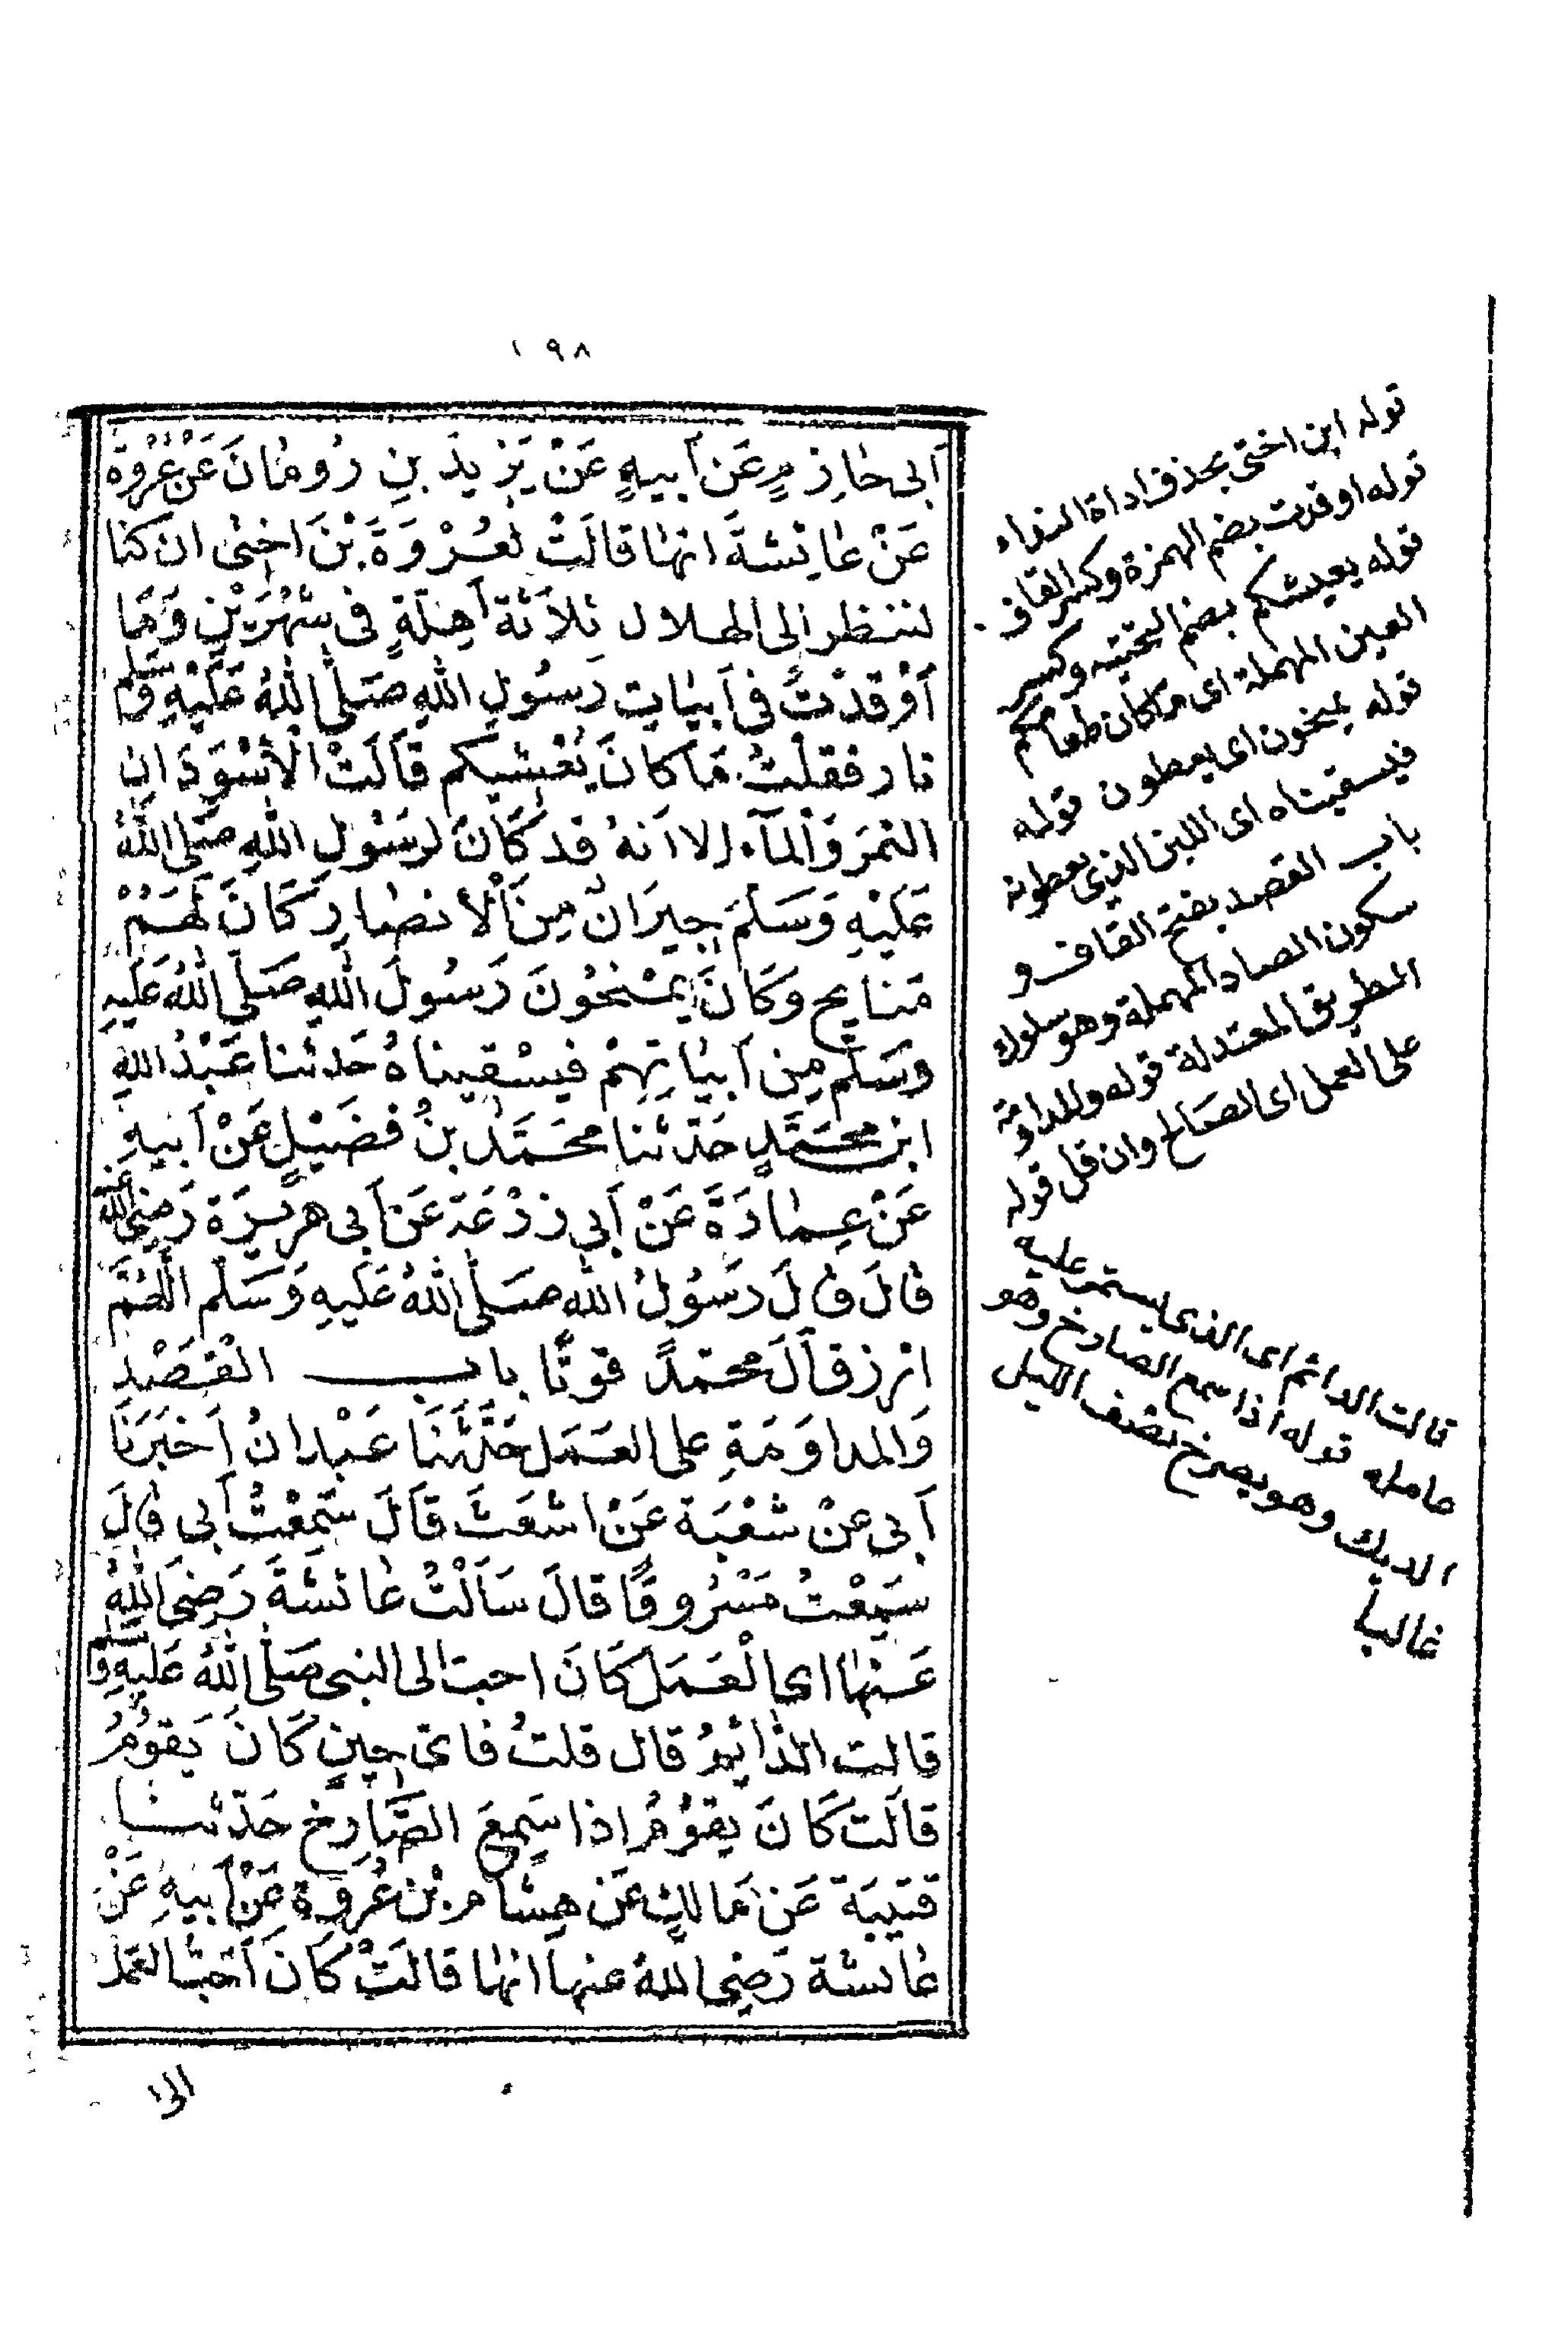 ١٩٨
أبي حازمٍ عَن أبيهِ عَنْ يَزيدَ بنِ رُومَانَ عَنْ عُرْوَةَ
عَنْ عائِشةَ انها قالَتْ لعُرْوَةَ بْنَ اختى ان كنا
لننظر إلى الهلال ثلاَثَةَ أهِلَّةٍ فى شَهْرَيْنِ وَمَا
أوْقدَتْ فى أبيات رَسُولِ اللهِ صَلَّى اللهُ عَلَيْهِ وَسَلم
نار فقلتُ مَا كانَ يُعْيشكم قَالَتْ الْأسْوَدَانِ
التمرَ وَالمآء إلا أنهُ قد كَانَ لرسُولِ اللهِ صَلى اللهُ
عَلَيْهِ وَسَلمَ جيرَانٌ مِنَ الْأنصارِ كَانَ لَهَمْ
مَنايح وَكانَ يمْنحُونَ رَسُولَ اللهِ صَلى اللهُ عَليهِ
وَسَلم مِن أبيَاتِهِمْ فيسْقيناهُ حَدثنا عَبْدُ اللهِ
ابن محمَّدٍ حَدّثنا محمَّدُ بنُ فضَيْلٍ عَنْ أبيهِ
عَنْ عِمارَةَ عَنْ أبي زرْعَةَ عَن أبى هريرَة رَضِيَ الله عنه
قالَ قالَ رَسُولُ الله صَلَّى اللهُ عَليهِ وَسَلم اللهُمَّ
ارزق آلَ محمّدً قوتًا باب القَصْدِ
وَالمداوَمَةِ على العَمَل حَدَّثنَا عَبْدانُ أخبَرَنَا
أبى عنْ شعْبَة عَنْ اشعَثَ قَالَ سَمِعْتُ أبى قالَ
سَمِعْتُ مَسْرُوقًا قالَ سَألْتُ عائشةَ رَضِيَ اللهُ
عَنها اى الْعَمَل كَانَ احبّ الى النبى صَلى اللهُ عَليهِ وَسلم
قالت الدّائِمُ قال قلتُ فاىّ حِينٍ كَانَ يَقوُمُ
قالَت كَانَ يقوُمُ اذا سَمِعَ الصَّارِخ حَدّثنا
قتيبَة عَن مَالكٍ عَن هِشام بْن عُروة عَنْ أبيهِ عَنْ
عائشة رَضِيَ اللهُ عنها انها قالَتْ كَانَ أحَبّ العَمَل
الى
قوله ابن اختى بحذف اداة النداء
قوله اوقدت بضم الهمزة وكسر القاف
قوله يعيشكم بضم التحتيه وكسر
العين المهملة اى ما كان طعامكم
قوله يمنحون اى يعطون قوله
فيسقيناه اى اللبن الذى يعطونه
باب القصد بفتح القاف و
سكون الصاد المهملة وهو سلوك
الطريق المعتدلة قوله والمداومة
على العمل اى الصالح وان قل قوله
قالت الدائم اى الذى يستمر عليه
عامله قوله اذا سمع الصارخ وهو
الديك وهو يصرخ نصف الليل
غالبا